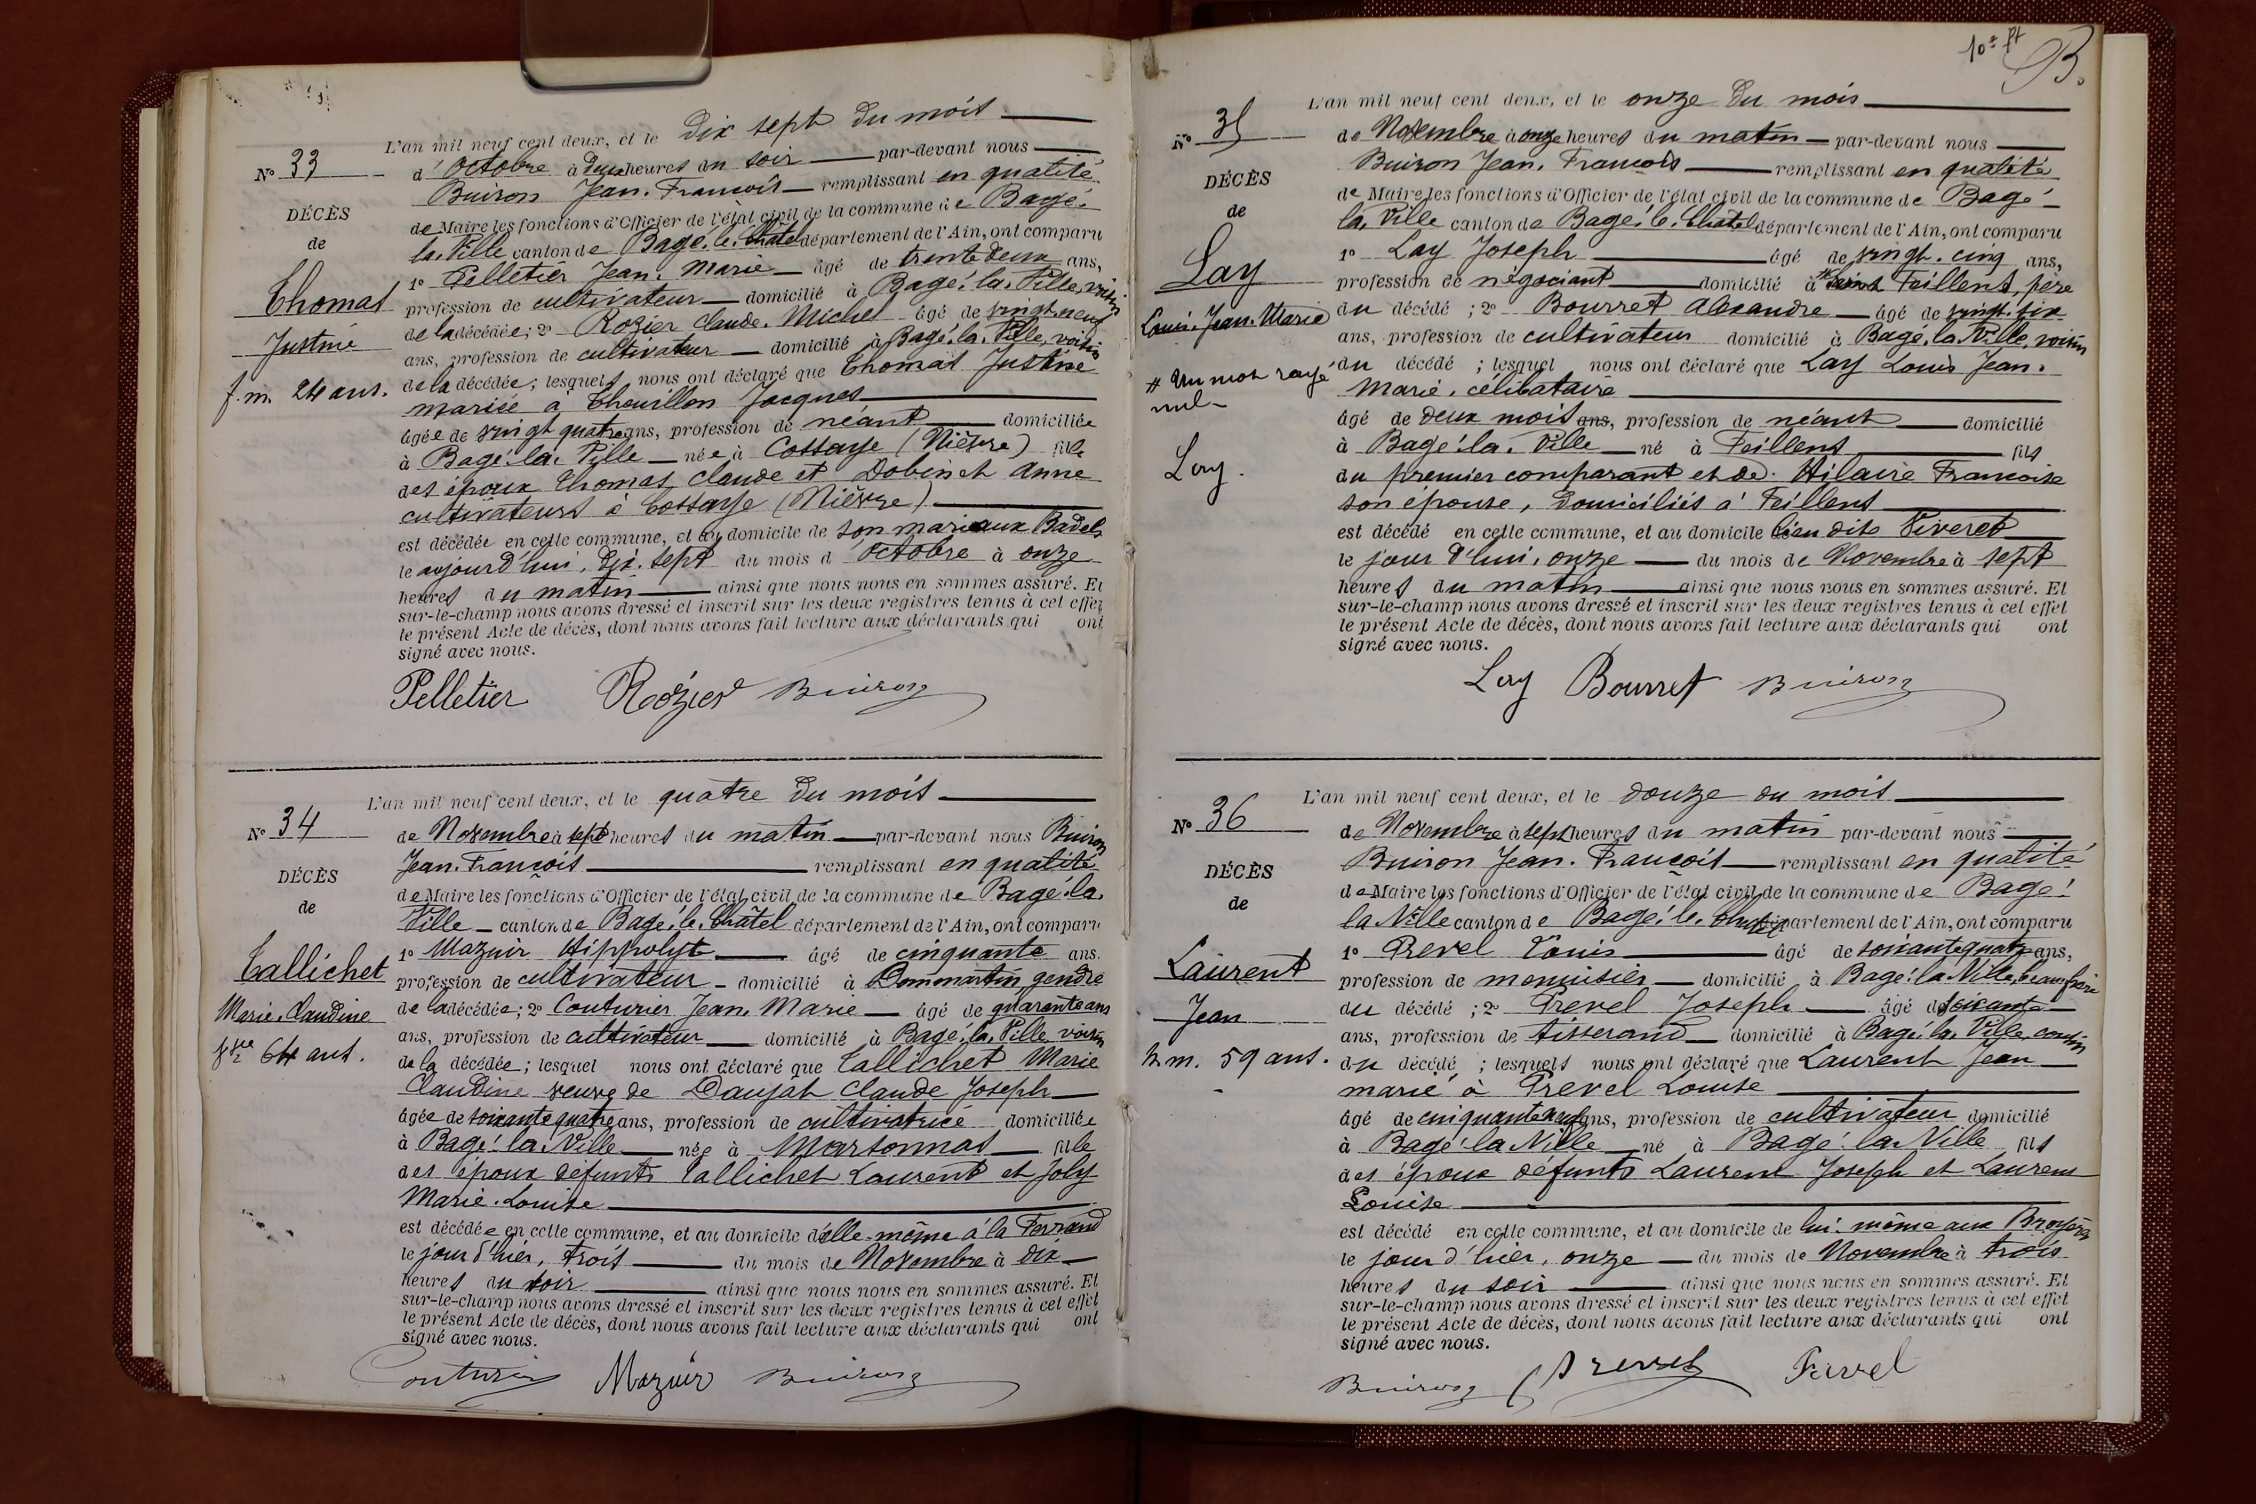 L'an mil neuf cent deux, et le Dix sept du mois
N° 33
d'Octobre à deux heures du soir par-devant nous
Buiron Jean. François remplissant en qualité
DÉCÈS
de Maire les fonctions d'Officier de l'état civil de la commune de Bagé.
de
la. Ville canton de Bagé. le. Châtel département de l'Ain, ont comparu
1° Pelletier Jean. Marie âgé de trente deux ans,
Thomas
profession de cultivateur domicilié à Bagé. la. Ville, voisin
de la décédée; 2° Rozier Claude. Michel âgé de vingt. neuf
Justine
ans, profession de cultivateur domicilié à Bagé. la. Ville, voisin
de la décédée; lesquels nous ont déclaré que Thomas Justine
f. m. 24 ans.
mariée à Theurillon Jacques
âgée de vingt quatre ans, profession de néant domiciliée
à Bagé. la. Ville née à Cossaye (Nièvre) fille
des époux Thomas Claude et Dobinet Anne
cultivateurs à Cossaye (Nièvre)
est décédée en cette commune, et au domicile de son mari aux Badels
le aujourd'hui, dix. sept du mois d'Octobre à onze
heures du matin ainsi que nous nous en sommes assuré. Et
sur-le-champ nous avons dressé et inscrit sur les deux registres tenus à cet effet
le présent Acte de décès, dont nous avons fait lecture aux déclarants qui ont
signé avec nous.
Pelletier Rozier Buiron
L'an mil neuf cent deux, et le quatre du mois
N° 34
de Novembre à sept heures du matin par-devant nous Buiron
Jean. François remplissant en qualité
DÉCÈS
de Maire les fonctions d'Officier de l'état civil de la commune de Bagé. la.
de
Ville canton de Bagé. le. Châtel département de l'Ain, ont comparu
1° Mazuir Hippolyte âgé de cinquante ans.
Callichet
profession de cultivateur domicilié à Dommartin, gendre
de la décédée; 2° Couturier Jean. Marie âgé de quarante ans
Marie. Claudine
ans, profession de cultivateur domicilié à Bagé. la. Ville voisin
fve 64 ans.
de la décédée; lesquel nous ont déclaré que Callichet Marie
Claudine veuve de Daujat Claude Joseph
âgée de soixante quatre ans, profession de cultivatrice domiciliée
à Bagé. la. Ville née à Marsonnas fille
des époux défunts Callichet Laurent et Joly
Marie. Louise
est décédée en cette commune, et au domicile d'elle. même à la Ferrand
le jour d'hier, trois du mois de Novembre à dix
heures du soir ainsi que nous nous en sommes assuré. Et
sur-le-champ nous avons dressé et inscrit sur les deux registres tenus à cet effet
le présent Acte de décès, dont nous avons fait lecture aux déclarants qui ont
signé avec nous.
Couturier Mazuir Buiron
10e ft B.
L'an mil neuf cent deux, et le onze du mois
N° 35
de Novembre à onze heures du matin par-devant nous
Buiron Jean. François remplissant en qualité
DÉCÈS
de Maire les fonctions d'Officier de l'état civil de la commune de Bagé
de
la. Ville canton de Bagé. le. Châtel département de l'Ain, ont comparu
1° Lay Joseph âgé de vingt. cinq ans,
Lay
profession de négociant domicilié à Feillens, père
Louis. Jean. Marie
du décédé; 2° Bourret Alexandre âgé de vingt. six
ans, profession de cultivateur domicilié à Bagé. la. Ville, voisin
# Un mot rayé
nul
du décédé; lesquel nous ont déclaré que Lay Louis Jean.
Marie, célibataire
âgé de deux mois ans, profession de néant domicilié
à Bagé. la. Ville né à Feillens fils
Lay.
du premier comparant et de. Hilaire Françoise
son épouse, domiciliés à Feillens
est décédé en cette commune, et au domicile lieu dit Viveret
le jour d'hui, onze du mois de Novembre à sept
heures du matin ainsi que nous nous en sommes assuré. Et
sur-le-champ nous avons dressé et inscrit sur les deux registres tenus à cet effet
le présent Acte de décès, dont nous avons fait lecture aux déclarants qui ont
signé avec nous.
Lay Bourret Buiron
L'an mil neuf cent deux, et le douze du mois
N° 36
de Novembre à sept heures du matin par-devant nous
Buiron Jean. François remplissant en qualité
DÉCÈS
de Maire les fonctions d'Officier de l'état civil de la commune de Bagé.
de
la Ville canton de Bagé. le. Châtel département de l'Ain, ont comparu
1° Prevel Louis âgé de soixante quatre ans,
Laurent
profession de menuisier domicilié à Bagé. la. Ville, beau frère
du décédé; 2° Prevel Joseph âgé de soixante
Jean
ans, profession de tisserand domicilié à Bagé. la. Ville, cousin
h. m. 59 ans.
du décédé; lesquels nous ont déclaré que Laurent Jean
marié à Prevel Louise
âgé de cinquante neuf ans, profession de cultivateur domicilié
à Bagé. la Ville né à Bagé. la Ville fils
des époux défunts Laurent Joseph et Laurent
Louise
est décédé en cette commune, et au domicile de lui. même aux
le jour d'hier, onze du mois de Novembre à trois
heures du soir ainsi que nous nous en sommes assuré. Et
sur-le-champ nous avons dressé et inscrit sur les deux registres tenus à cet effet
le présent Acte de décès, dont nous avons fait lecture aux déclarants qui ont
signé avec nous.
Buiron Prevel Prevel